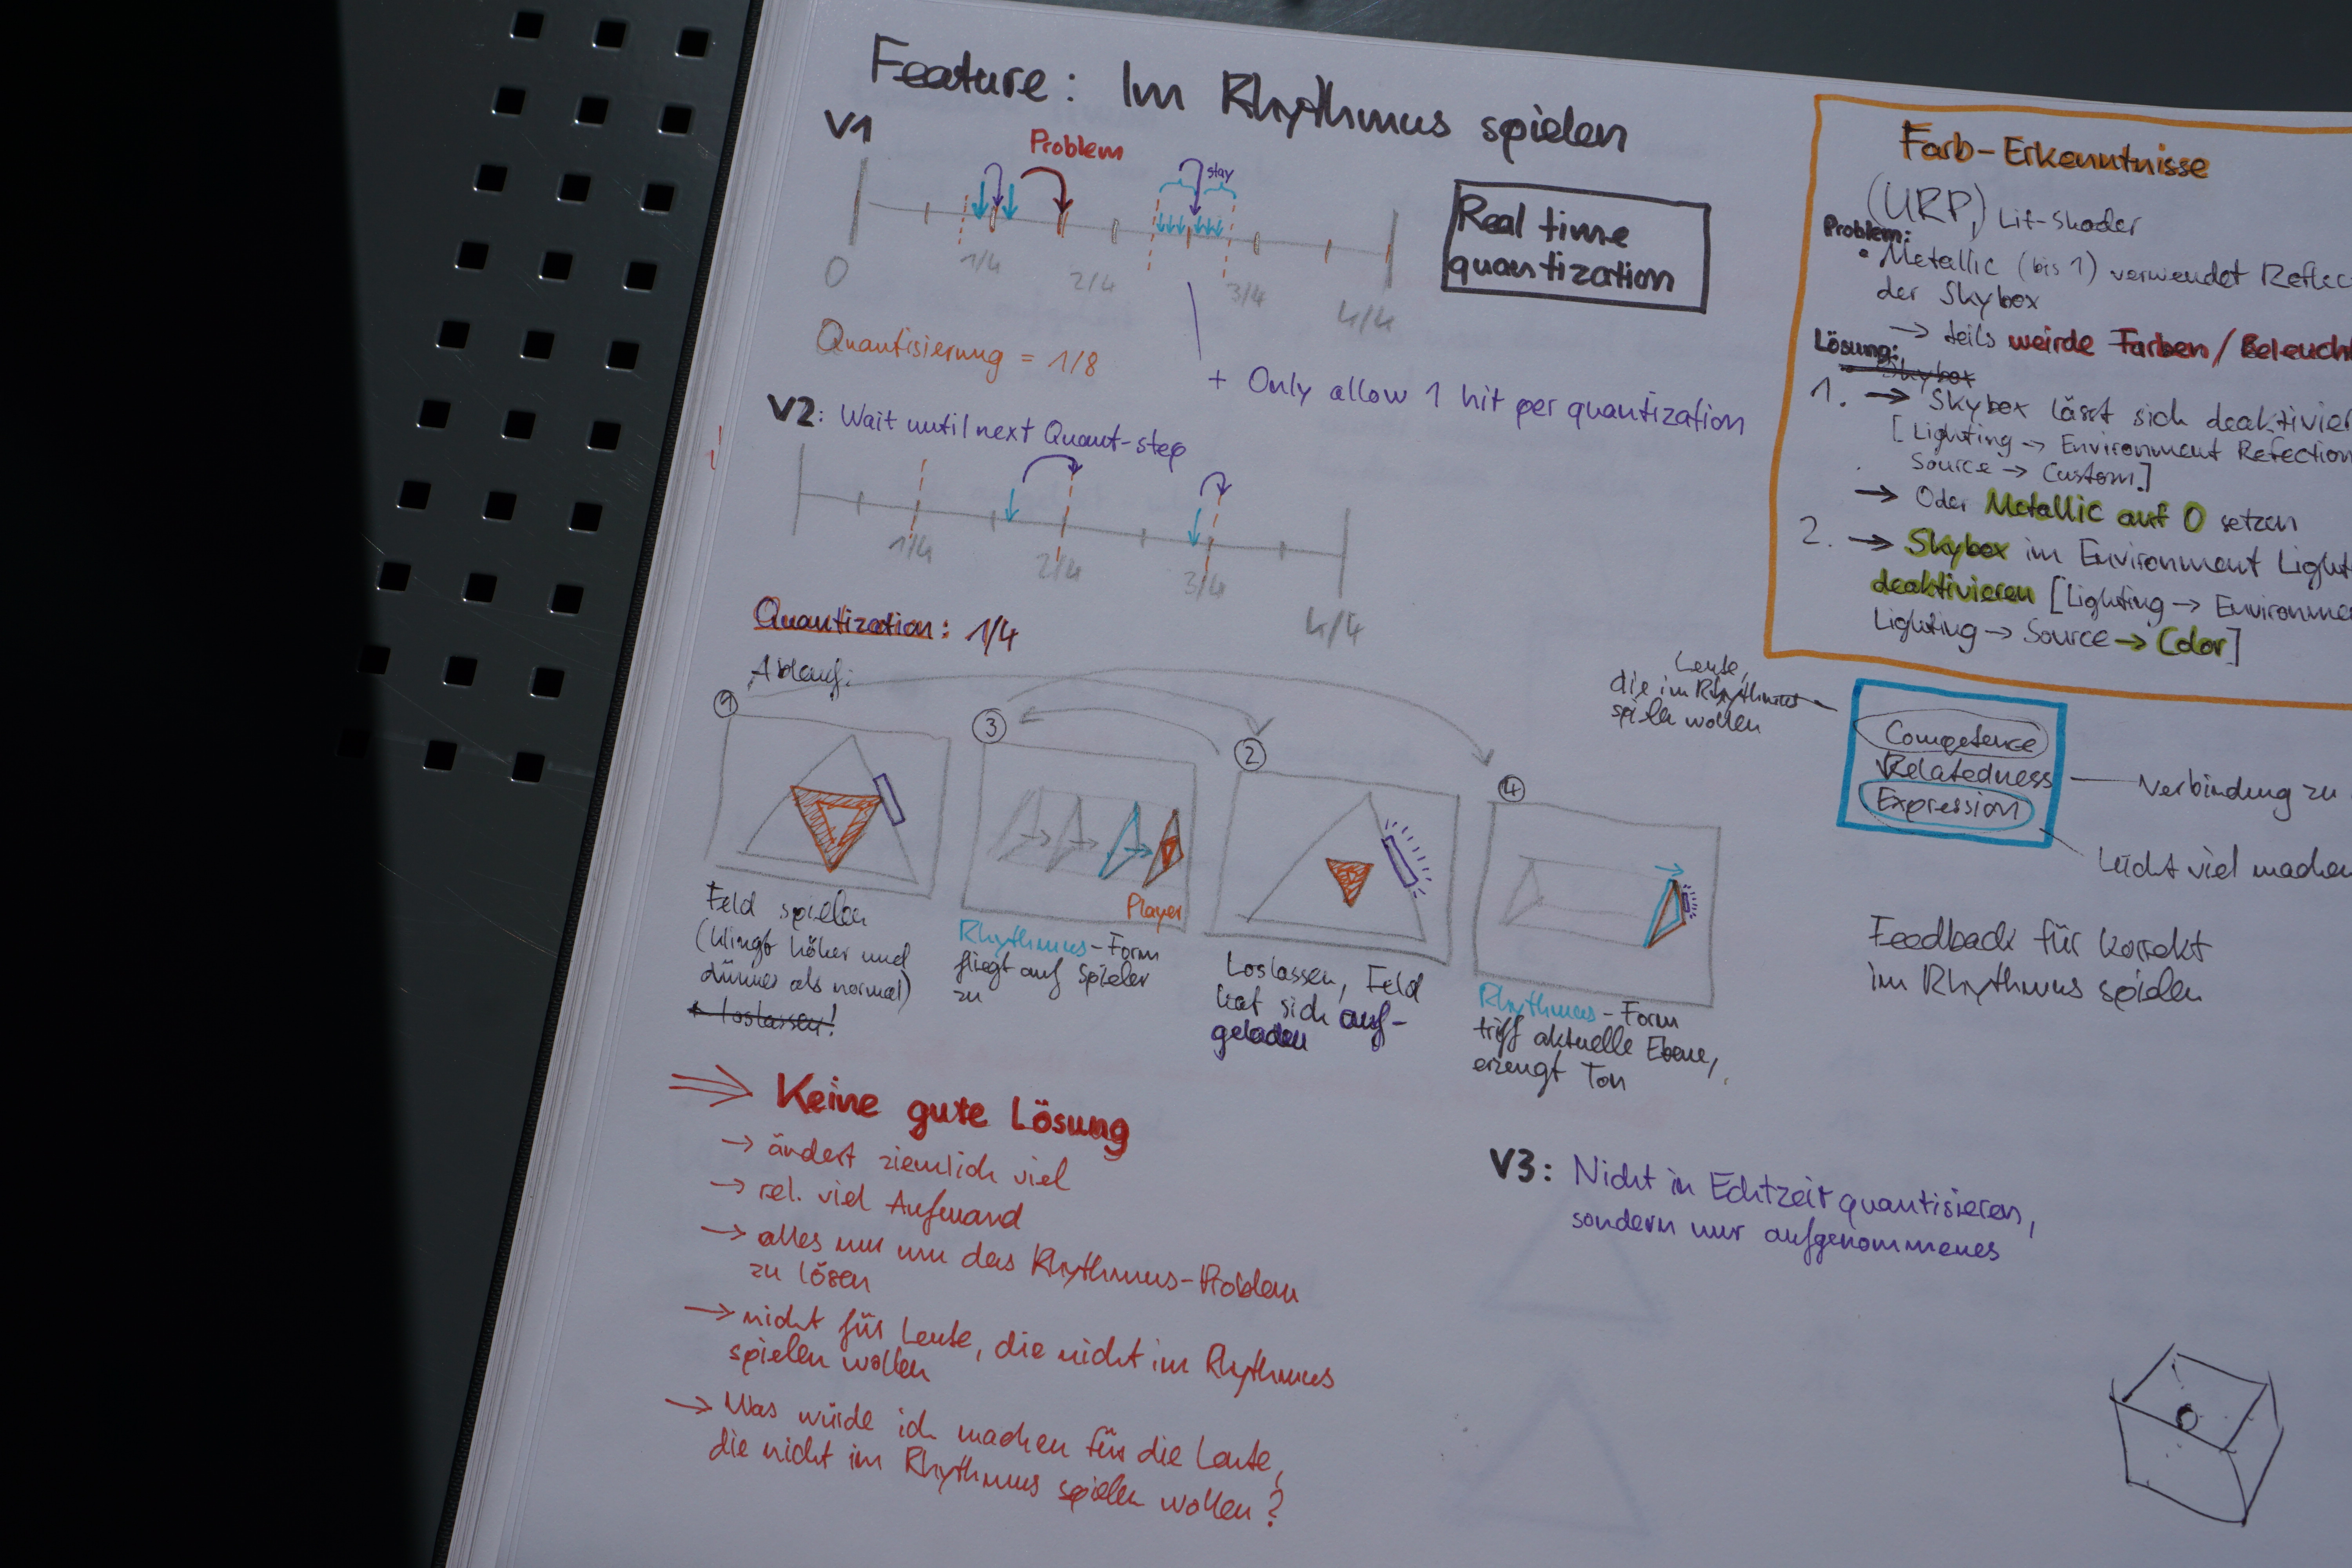 Feature: Im Rhythmus spielen
V1
Problem
stay
0
1/4
2/4
3/4
4/4
Real time
quantization
Quantisierung = 1/8
+ Only allow 1 hit per quantization
V2: Wait until next Quant-step
1/4
2/4
3/4
4/4
Quantization: 1/4
Ablauf:
1
3
2
4
Feld spielen
(klingt höher und
dünner als normal)
loslassen!
Player
Rhythmus-Form
fliegt auf Spieler
zu
Loslassen, Feld
hat sich auf-
geladen
Rhythmus-Form
triff aktuelle Ebene,
erzeugt Ton
⇒ Keine gute Lösung
→ ändert ziemlich viel
→ rel. viel Aufwand
→ alles nur um das Rhythmus-Problem
zu lösen
→ nicht für Leute, die nicht im Rhythmus
spielen wollen
→ Was würde ich machen für die Leute,
die nicht im Rhythmus spielen wollen?
Farb-Erkenntnisse
(URP,) Lit-Shader
Problem:
• Metallic (bis 1) verwendet Reflec
der Skybox
→ teils weirde Farben/Beleuch
Lösung:
Skybox
1. → Skybox lässt sich deaktivier
[Lighting → Environment Refection
Source → Custom]
→ Oder Metallic auf 0 setzen
2. → Skybox im Environment Light
deaktivieren [Lighting → Environme
Lighting → Source → Color]
Leute,
die im Rhythmus
spielen wollen
Competence
Relatedness
Expression
Verbindung zu
Leicht viel machen
Feedback für korrekt
im Rhythmus spielen
V3: Nicht in Echtzeit quantisieren,
sondern nur aufgenommenes